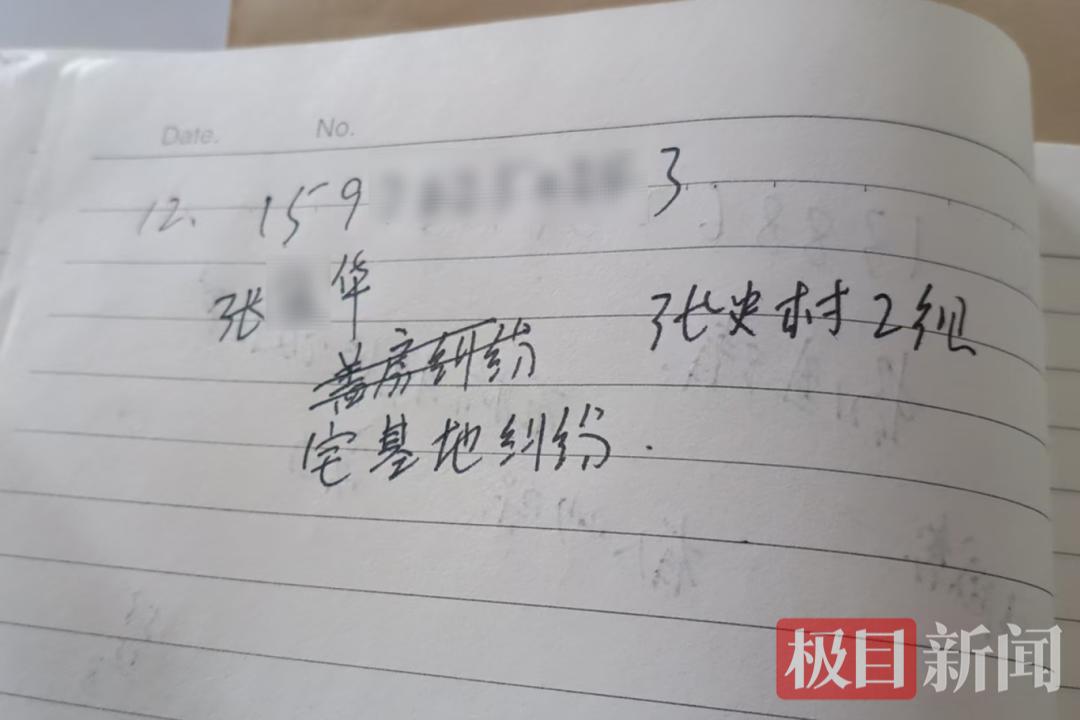 Date. No.
12、 159 3
张 华
张史村2组
盖房纠纷
宅基地纠纷.
极目新闻